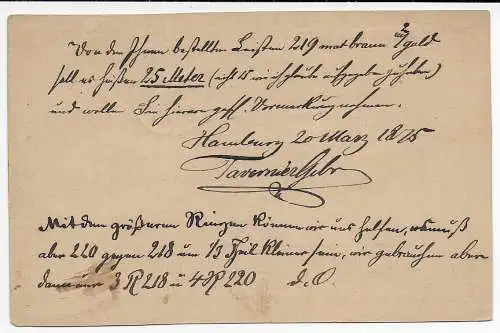 Von den Ihnen bestellten Leisten 219 mat braun u/ gold
soll es heißen 25 Meter (nicht 15 wie ich glaube aufgegeben zu haben)
und wollen Sie hiervon geff. Vormerkung nehmen.
Hamburg 20 März 1875
Tavernier Gebr
Mit den größeren Ringen können wir uns helfen, es muß
aber 220 gegen 218 um 1/3 Theil kleiner sein, wir gebrauchen aber
dann nur 3 218 u 4 220 d. O.